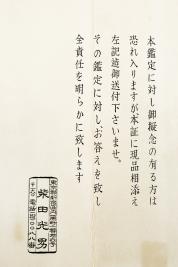 本鑑定に対し御擬念の有る方は
恐れ入りますが本証に現品相添え
左記迄御送付下さいませ。
その鑑定に対しお答えを致し
全責任を明らかに致します
柴田光男